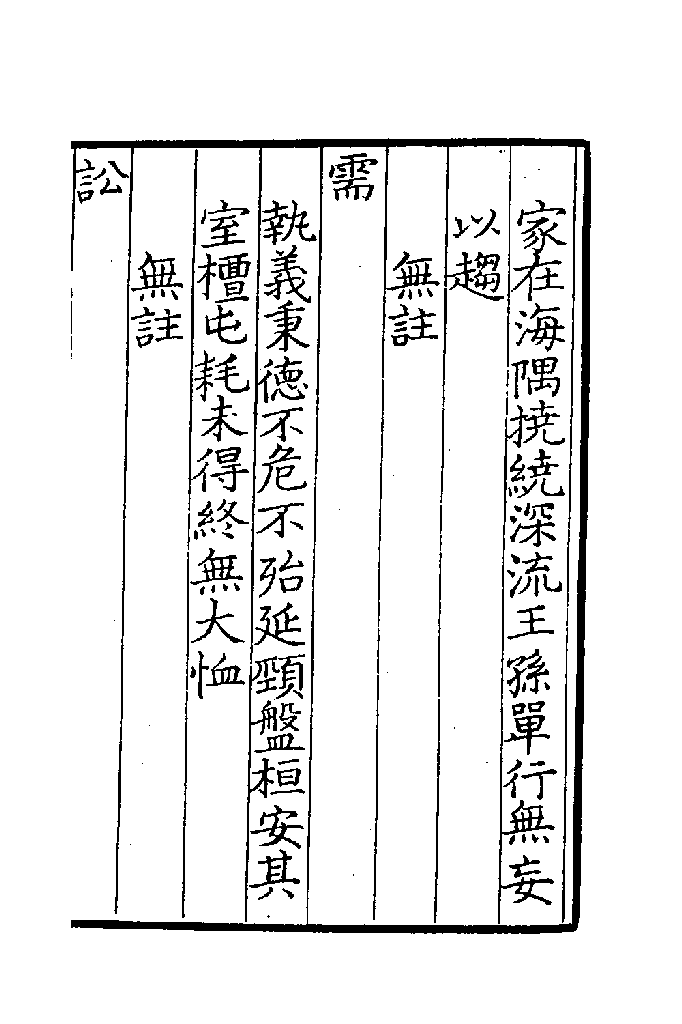 家在海隅撓繞深流王孫單行無妄
以趨
無註
需
執義秉德不危不殆延頸盤桓安其
室檀屯耗未得終無大恤
無註
訟